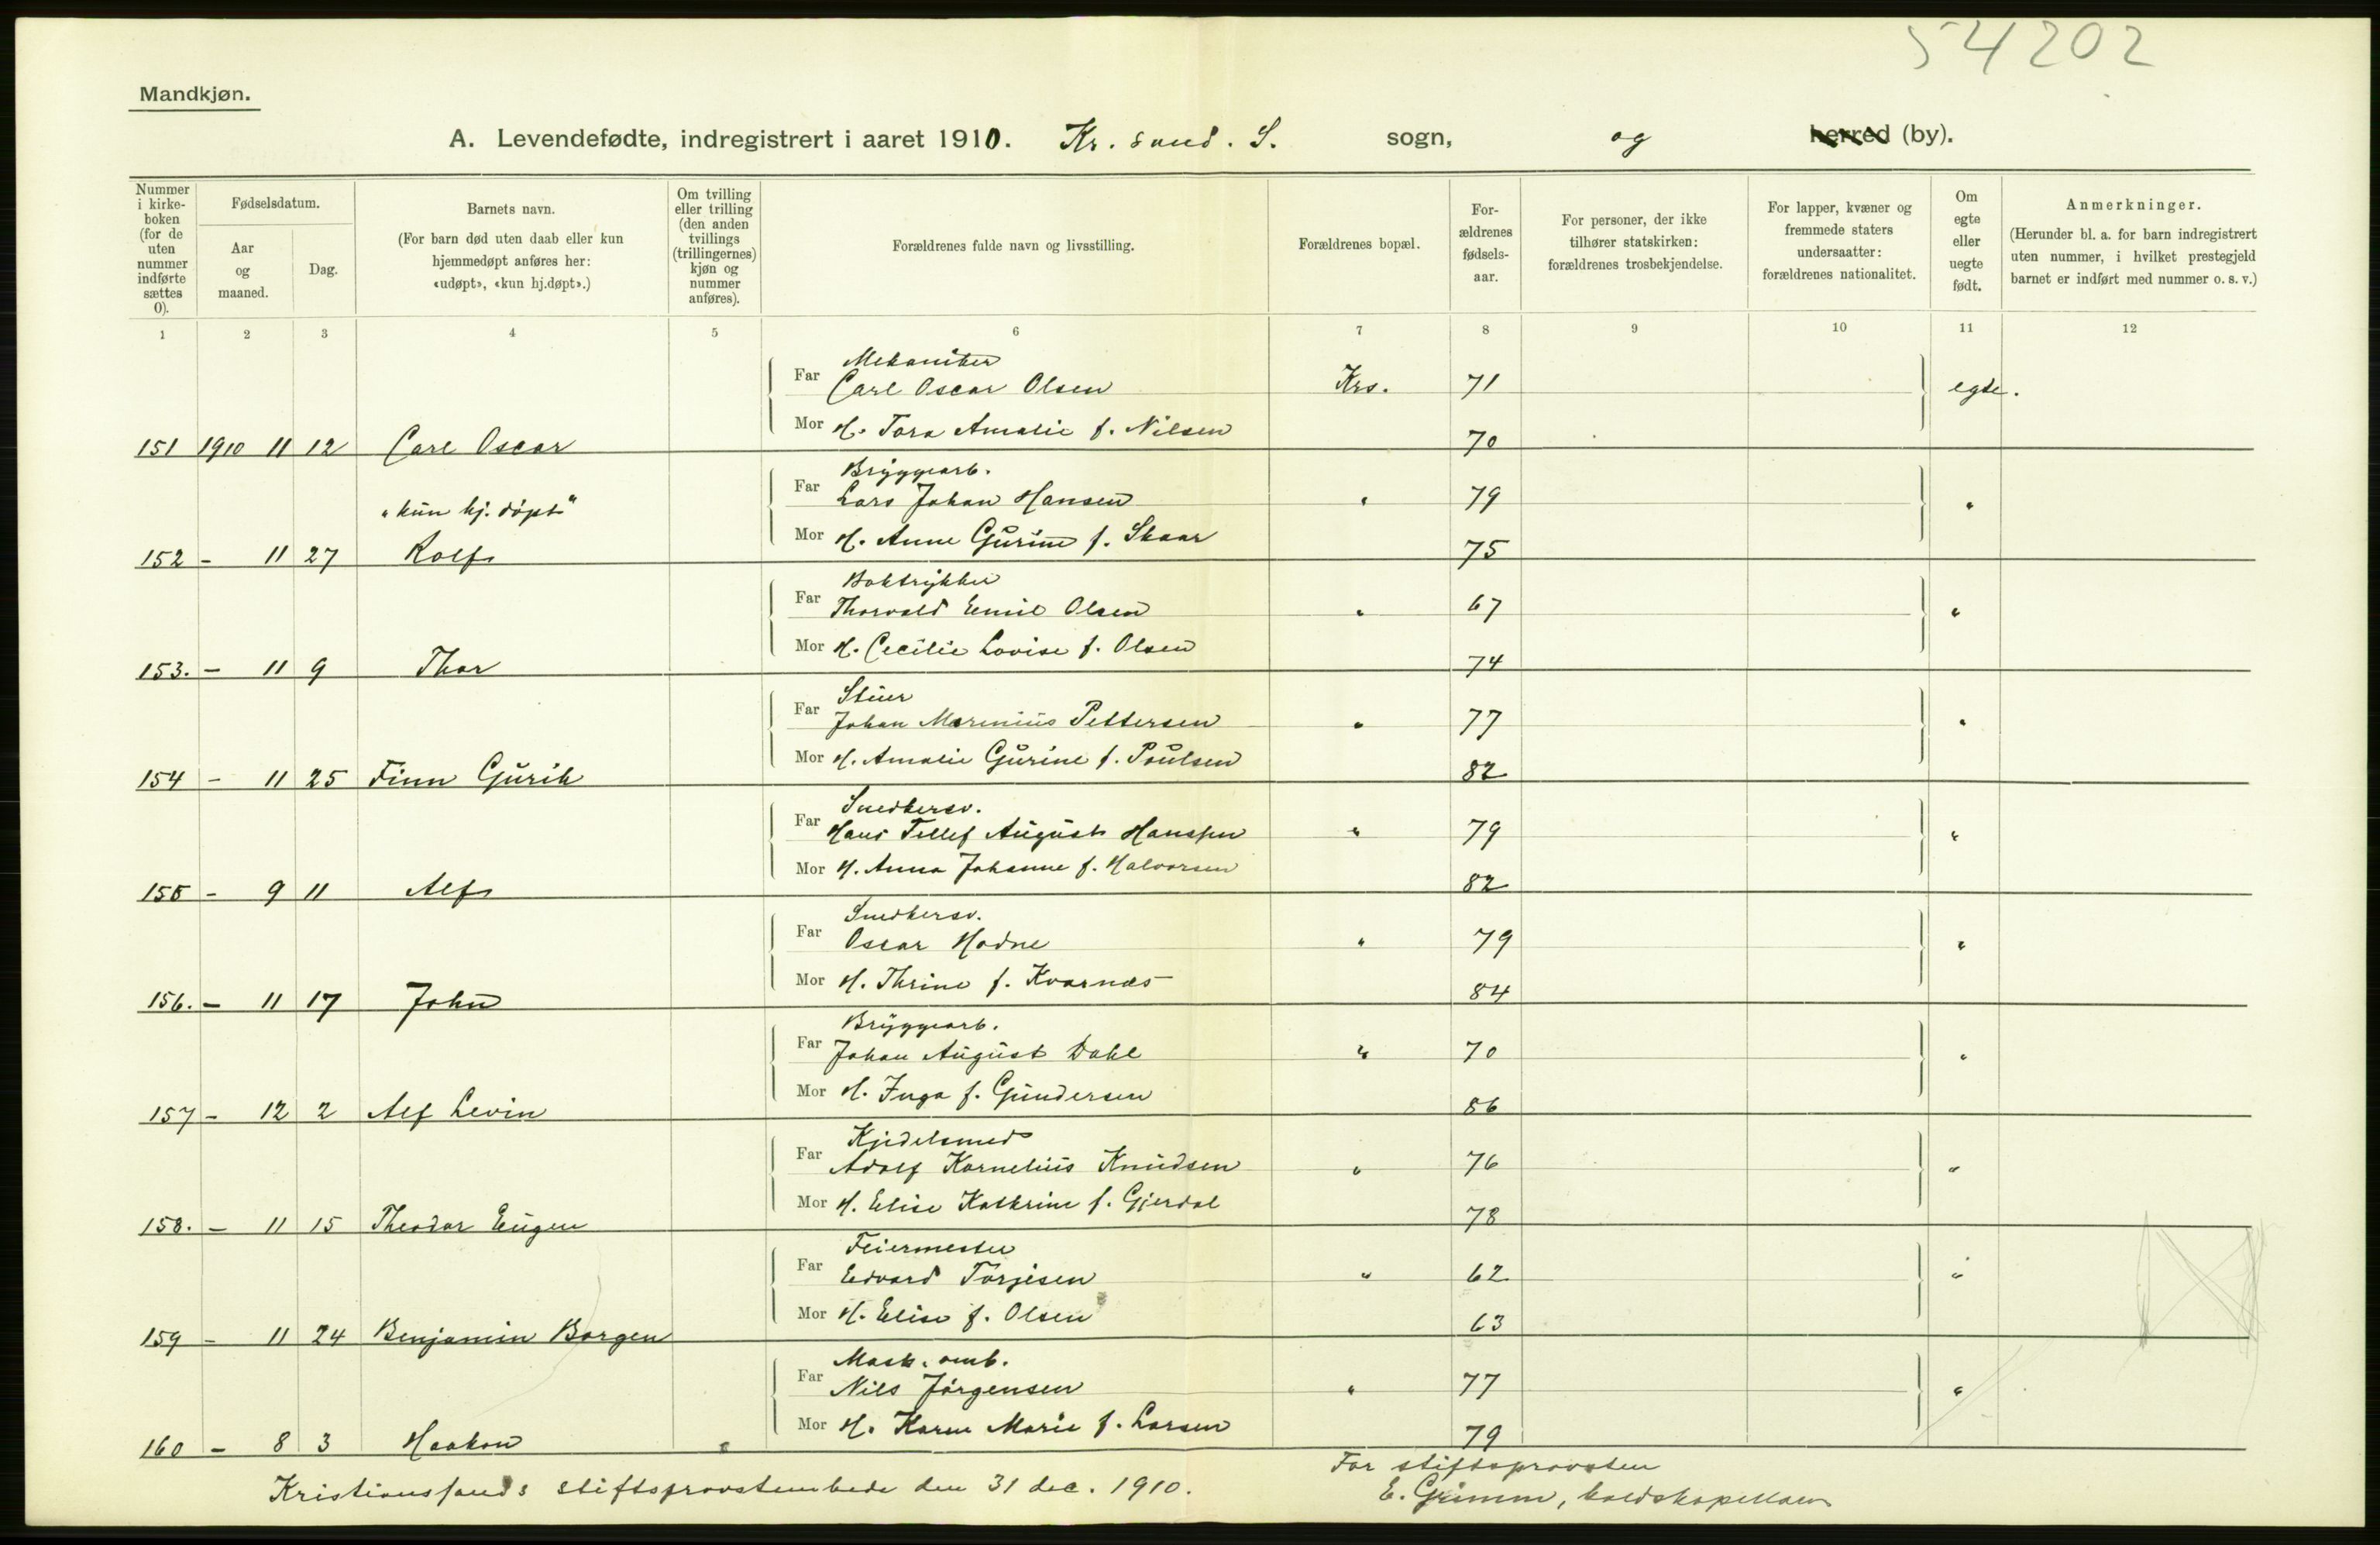 54202
Mandkjøn.
A. Levendefødte, indregistrert i aaret 1910. Kr. sand. S. sogn, og herred (by).
Nummer i kirke-boken (for de uten nummer indførte sættes 0).
Fødselsdatum.
Aar og maaned.
Dag.
Barnets navn.
(For barn død uten daab eller kun hjemmedøpt anføres her: «udøpt», «kun hj.døpt».)
Om tvilling eller trilling (den anden tvillings (trillingernes) kjøn og nummer anføres).
Forældrenes fulde navn og livsstilling.
Forældrenes bopæl.
For-ældrenes fødsels-aar.
For personer, der ikke tilhører statskirken: forældrenes trosbekjendelse.
For lapper, kvæner og fremmede staters undersaatter: forældrenes nationalitet.
Om egte eller uegte født.
Anmerkninger.
(Herunder bl. a. for barn indregistrert uten nummer, i hvilket prestegjeld barnet er indført med nummer o. s. v.)
1 2 3 4 5 6 7 8 9 10 11 12
Mekaniker
Far Carl Oscar Olsen Krs. 71 egte.
Mor H. Tora Amalie f. Nilsen 70
151 1910 11 12 Carl Oscar
Bryggearb.
Far Lars Johan Hansen " 79 "
"kun hj. døpt"
Mor H. Anne Gurine f. Skaar 75
152 - 11 27 Rolf
Boktrykker
Far Thorvald Emil Olsen " 67 "
Mor H. Cecilie Lovise f. Olsen 74
153. - 11 9 Thor
Stuer
Far Johan Marinius Pettersen " 77 "
Mor H. Amalie Gurine f. Poulsen 82
154 - 11 25 Finn Gurik
Snedkersv.
Far Hans Tellef August Hanssen " 79 "
Mor H. Anna Johanne f. Halvorsen 82
155 - 9 11 Alf
Snedkersv.
Far Oscar Hodne " 79 "
Mor H. Thrine f. Kvarnæs 84
156. - 11 17 John
Bryggearb.
Far Johan August Dahl " 70 "
Mor H. Inga f. Gundersen 86
157 - 12 2 Alf Levin
Kjedelsmed
Far Adolf Kornelius Knudsen " 76 "
Mor H. Elise Kathrine f. Gjerdal 78
158. - 11 15 Theodor Eugen
Feiermester
Far Edvard Torjesen " 62 "
Mor H. Elise f. Olsen 63
159 - 11 24 Benjamin Borgen
Mask. omb.
Far Nils Jørgensen " 77 "
Mor H. Karen Marie f. Larsen 79
160 - 8 3 Haakon
Kristianssands stiftsprovstembede den 31 dec. 1910.
For stiftsprovsten
E. Grimm, kaldskapellan